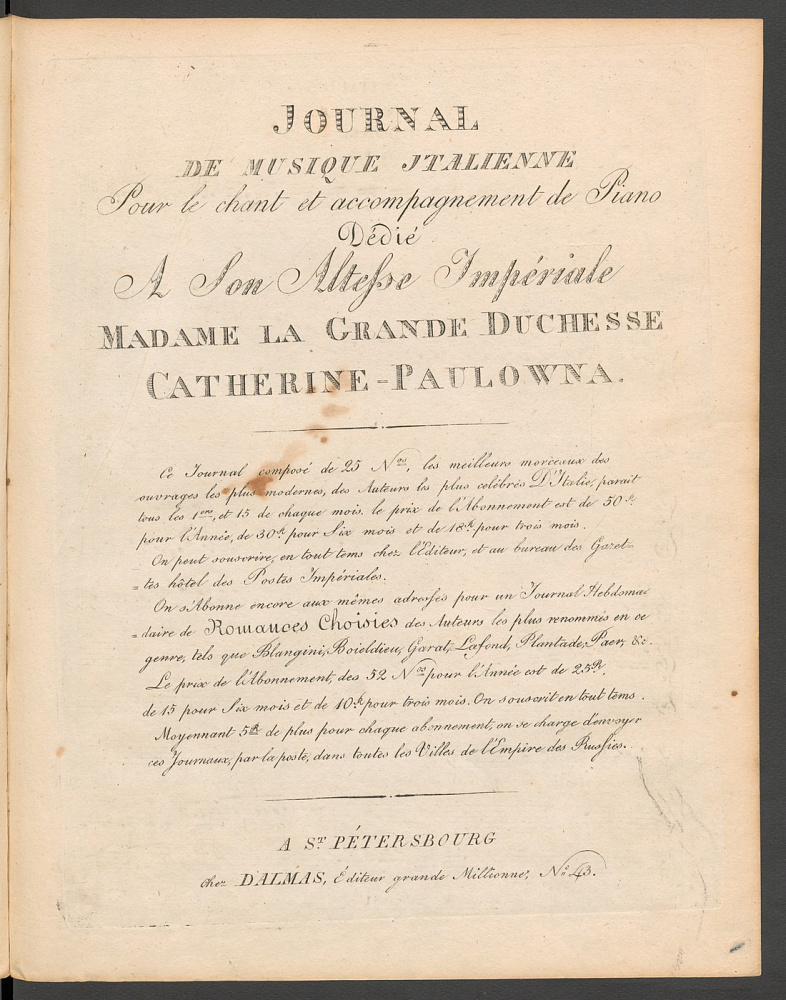 JOURNAL
DE MUSIQUE ITALIENNE
Pour le chant et accompagnement de Piano
Dédié
A Son Altesse Impériale
MADAME LA GRANDE DUCHESSE
CATHERINE-PAULOWNA.
Ce Journal composé de 25 Nos, les meilleurs morceaux des
ouvrages les plus modernes, des Auteurs les plus celébrés D'Italie, parait
tous les 1ers, et 15 de chaque mois. le prix de l'Abonnement est de 50 R.
pour l'Année, de 30 R pour Six mois et de 18 R. pour trois mois.
On peut souscrire, en tout tems chez l'Éditeur, et au bureau des Gazet=
=tes hôtel des Postes Impériales.
On s'Abonne encore aux mêmes adresses pour un Journal Hebdoma=
=daire de Romances Choisies des Auteurs les plus renommés en ce
genre, tels que Blangini, Boieldieu, Garat, Lafond, Plantade, Paer, &c.
Le prix de l'Abonnement, des 52 Nos pour l'Année est de 25 R,
de 15 pour Six mois et de 10 R pour trois mois. On souscrit en tout tems.
Moyennant 5 R de plus pour chaque abonnement, on se charge d'envoyer
ces Journaux, par la poste, dans toutes les Villes de l'Empire des Russies.
A ST PÉTERSBOURG
chez DALMAS, Éditeur grande Millionne, No 43.